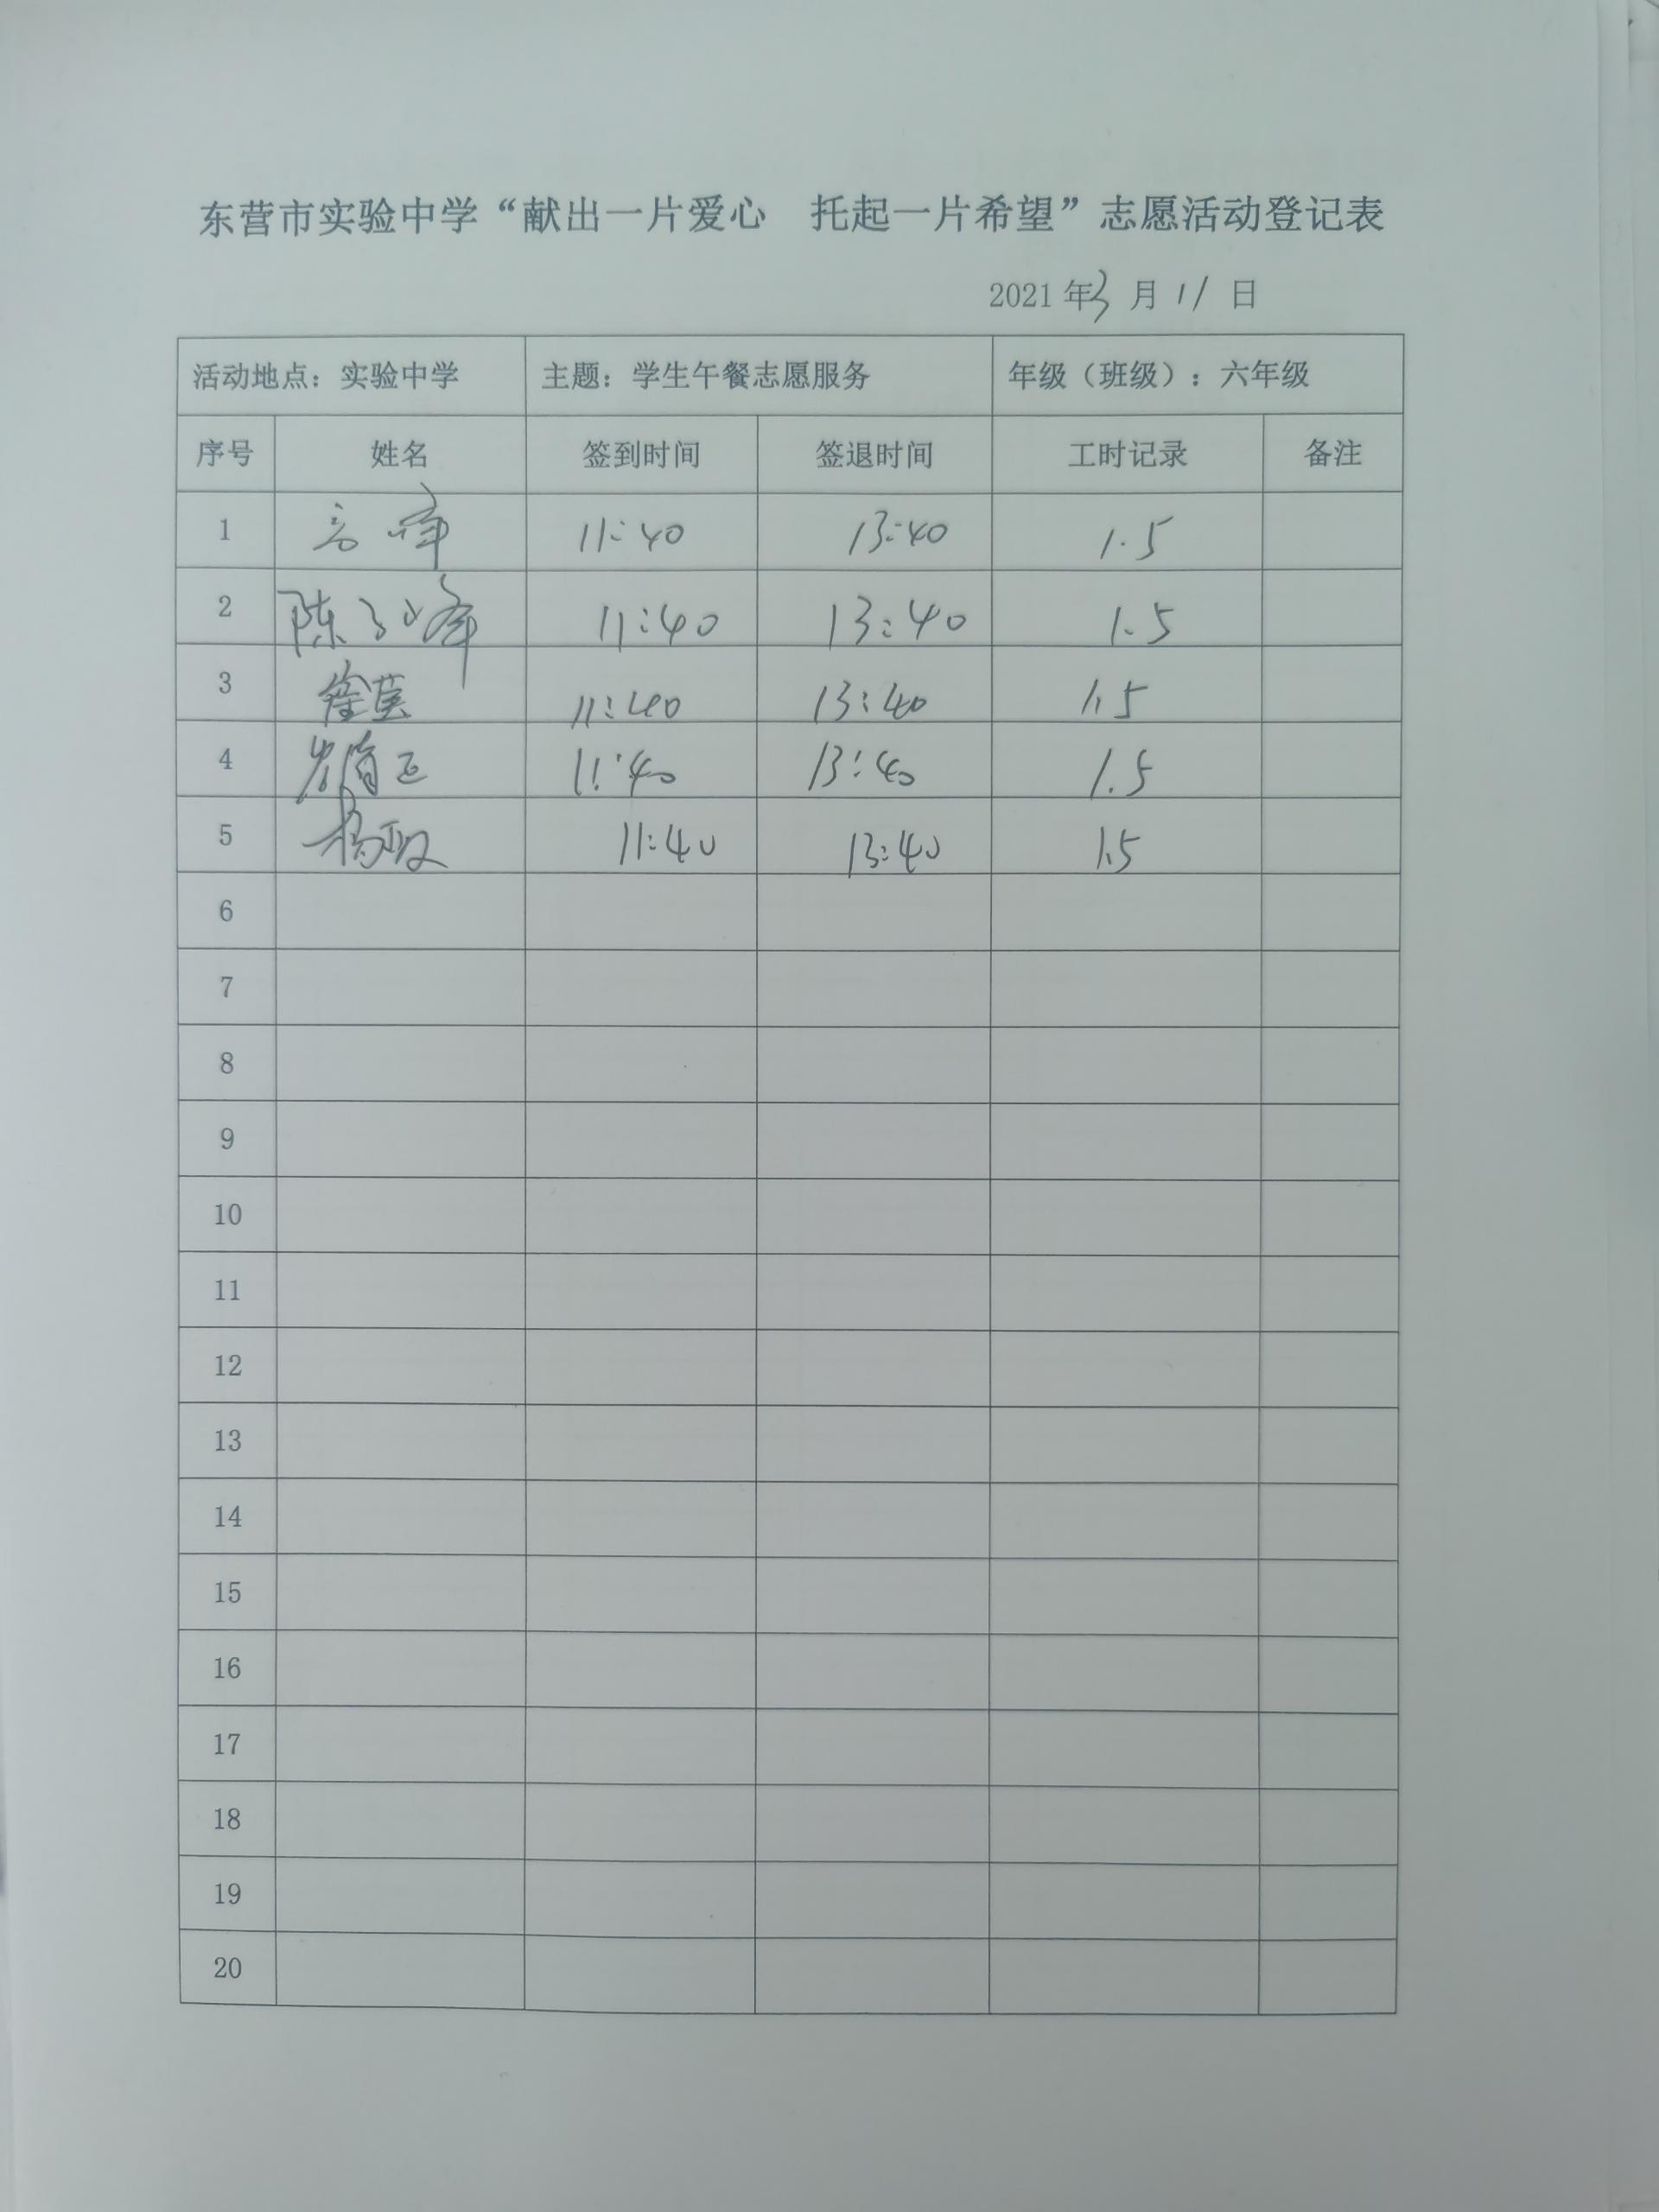 东营市实验中学“献出一片爱心 托起一片希望”志愿活动登记表
2021 年 3 月 11 日
活动地点：实验中学 主题：学生午餐志愿服务 年级（班级）：六年级
序号 姓名 签到时间 签退时间 工时记录 备注
1 11:40 13:40 1.5
2 陈 11:40 13:40 1.5
3 11:40 13:40 1.5
4 11:40 13:40 1.5
5 杨 11:40 13:40 1.5
6
7
8
9
10
11
12
13
14
15
16
17
18
19
20